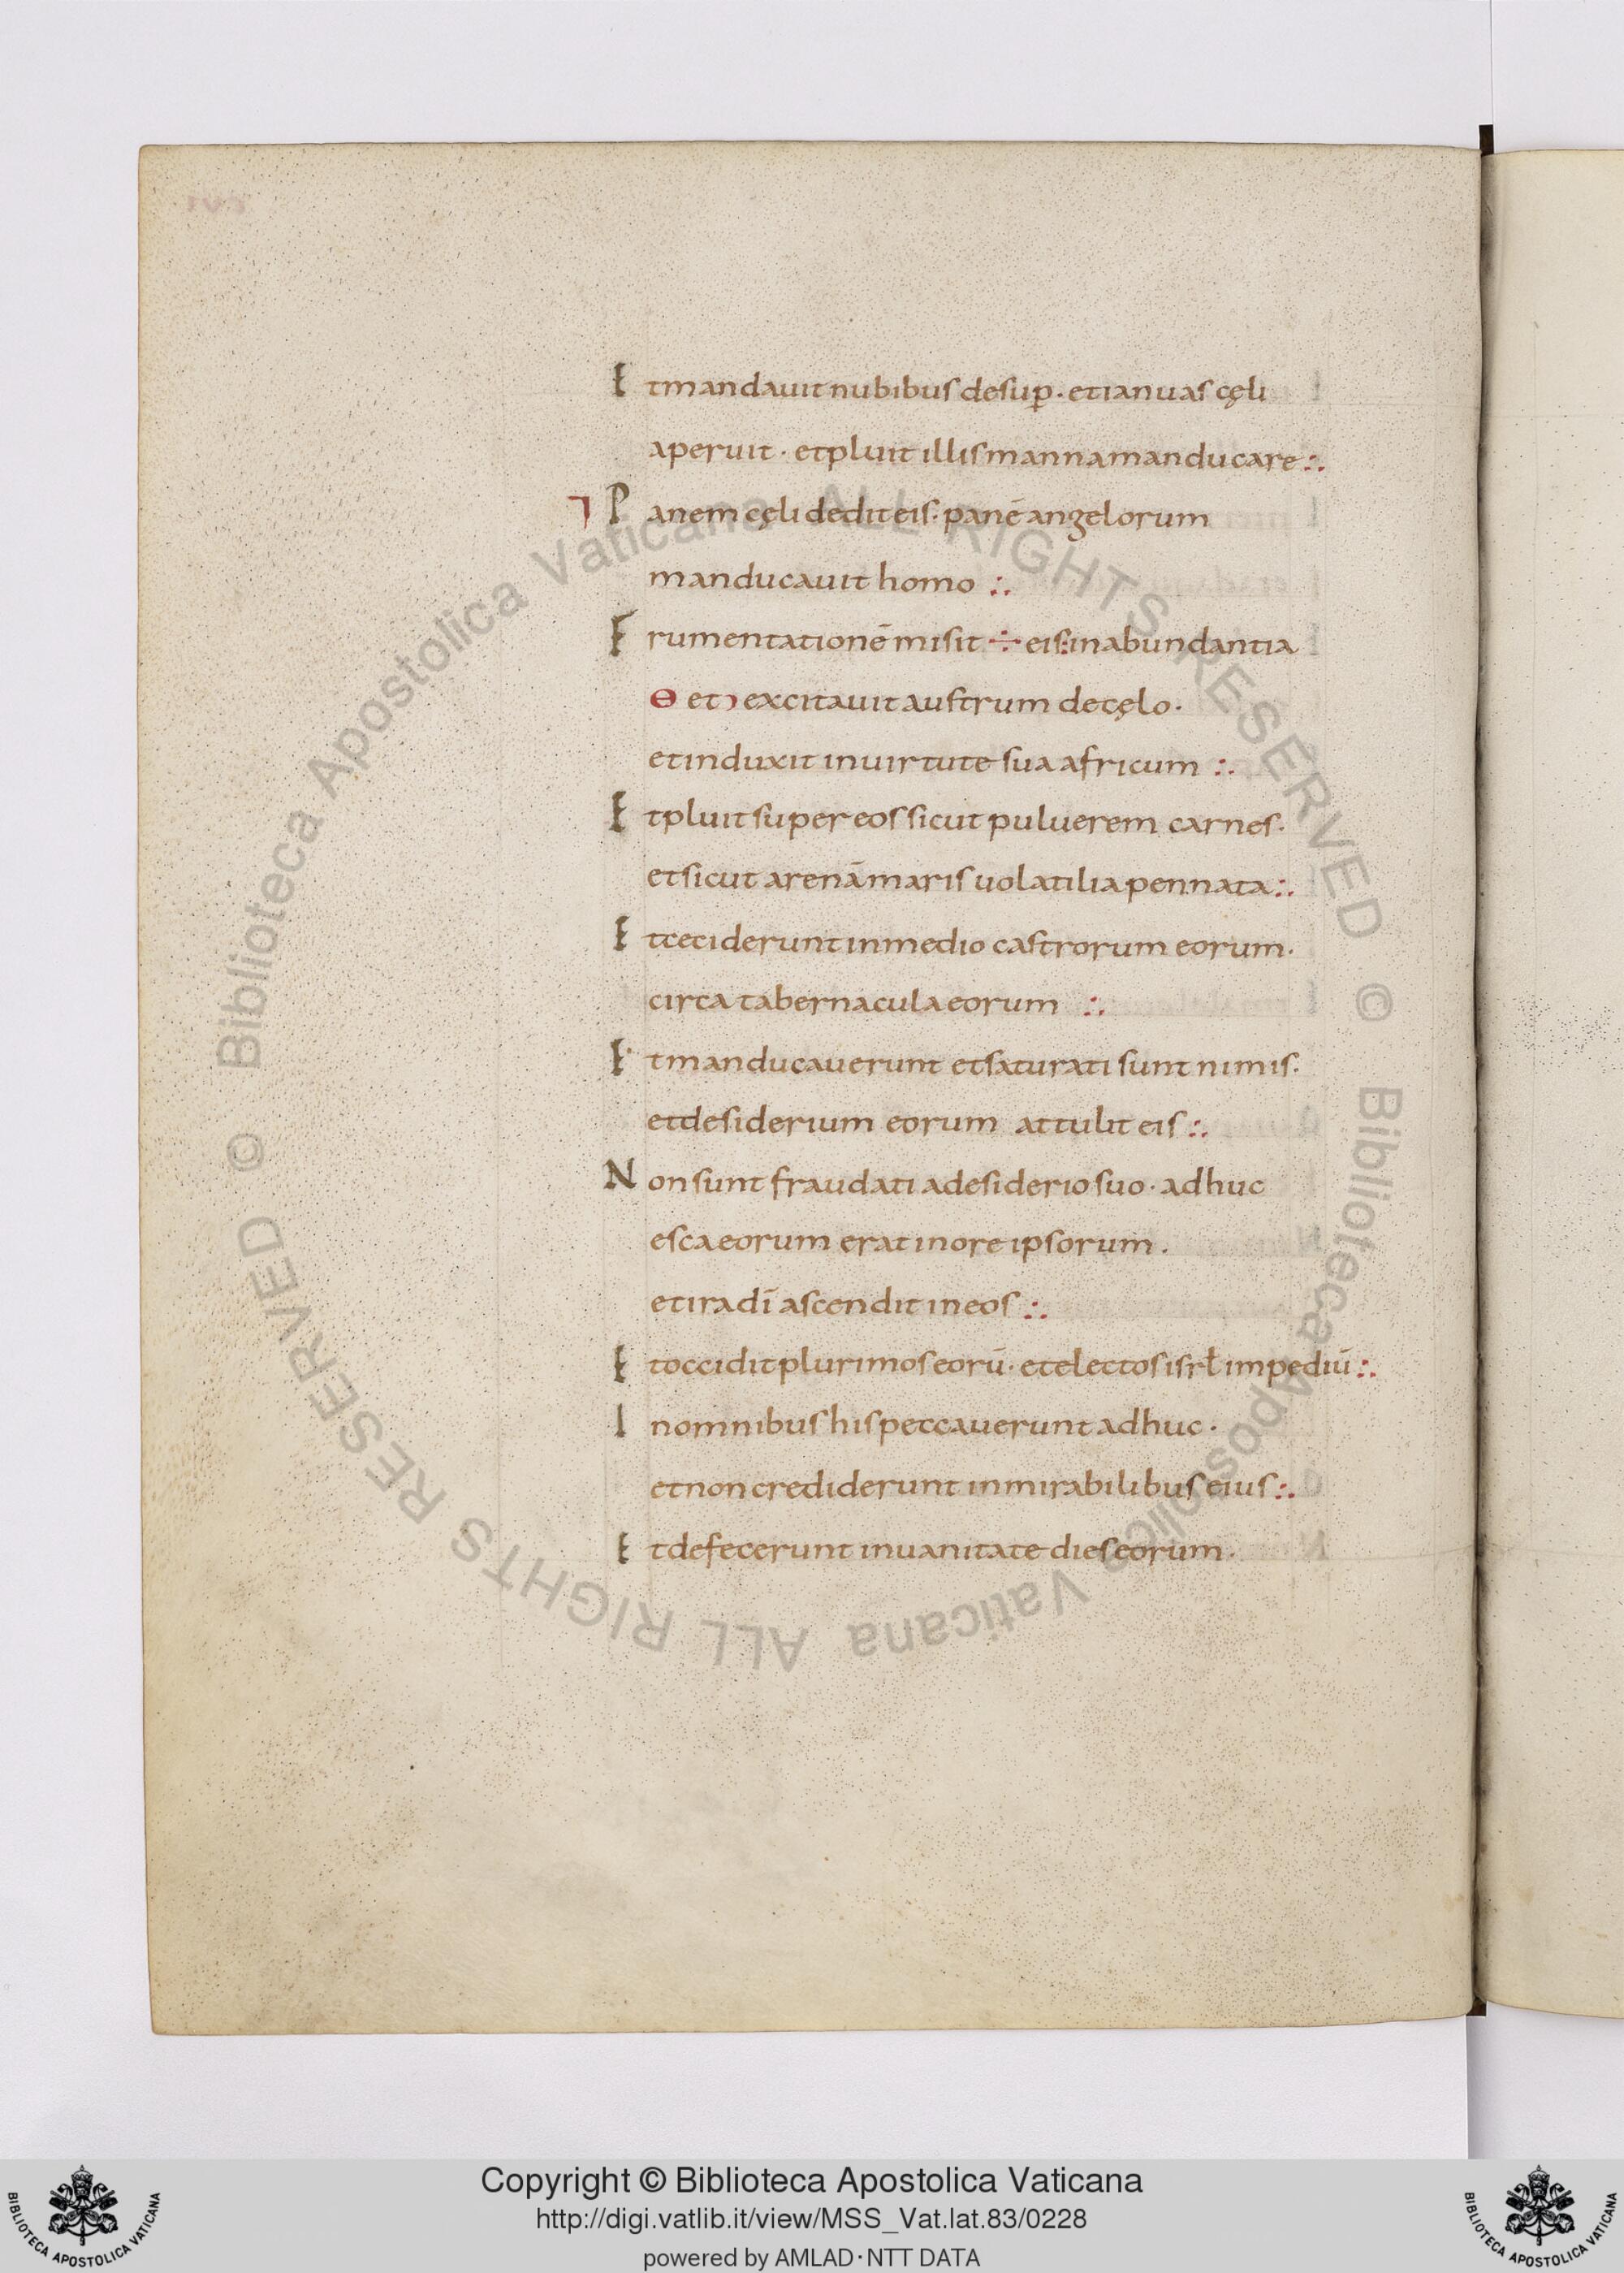 Et mandauit nubibus desup̱ · et ianuas cęli
aperuit · et pluit illis manna manducare :.
⁊ Panem cęli dedit eis · panē angelorum
manducauit homo :.
Frumentationē misit ÷ eis : in abundantia
Θ et excitauit austrum de cęlo ·
et induxit in uirtute sua africum :.
Et pluit super eos sicut puluerem carnes ·
et sicut arenā maris uolatilia pennata :.
Et ceciderunt in medio castrorum eorum ·
circa tabernacula eorum :.
Et manducauerunt et saturati sunt nimis ·
et desiderium eorum attulit eis :.
Non sunt fraudati a desiderio suo · adhuc
esca eorum erat in ore ipsorum ·
et ira dī ascendit in eos :.
Et occidit plurimos eorū · et electos isrł impediū :.
In omnibus his peccauerunt adhuc ·
et non crediderunt in mirabilibus eius :.
Et defecerunt in uanitate dies eorum ·
© Biblioteca Apostolica Vaticana ALL RIGHTS RESERVED
© Biblioteca Apostolica Vaticana ALL RIGHTS RESERVED
Copyright © Biblioteca Apostolica Vaticana
http://digi.vatlib.it/view/MSS_Vat.lat.83/0228
powered by AMLAD·NTT DATA
BIBLIOTECA APOSTOLICA VATICANA
BIBLIOTECA APOSTOLICA VATICANA